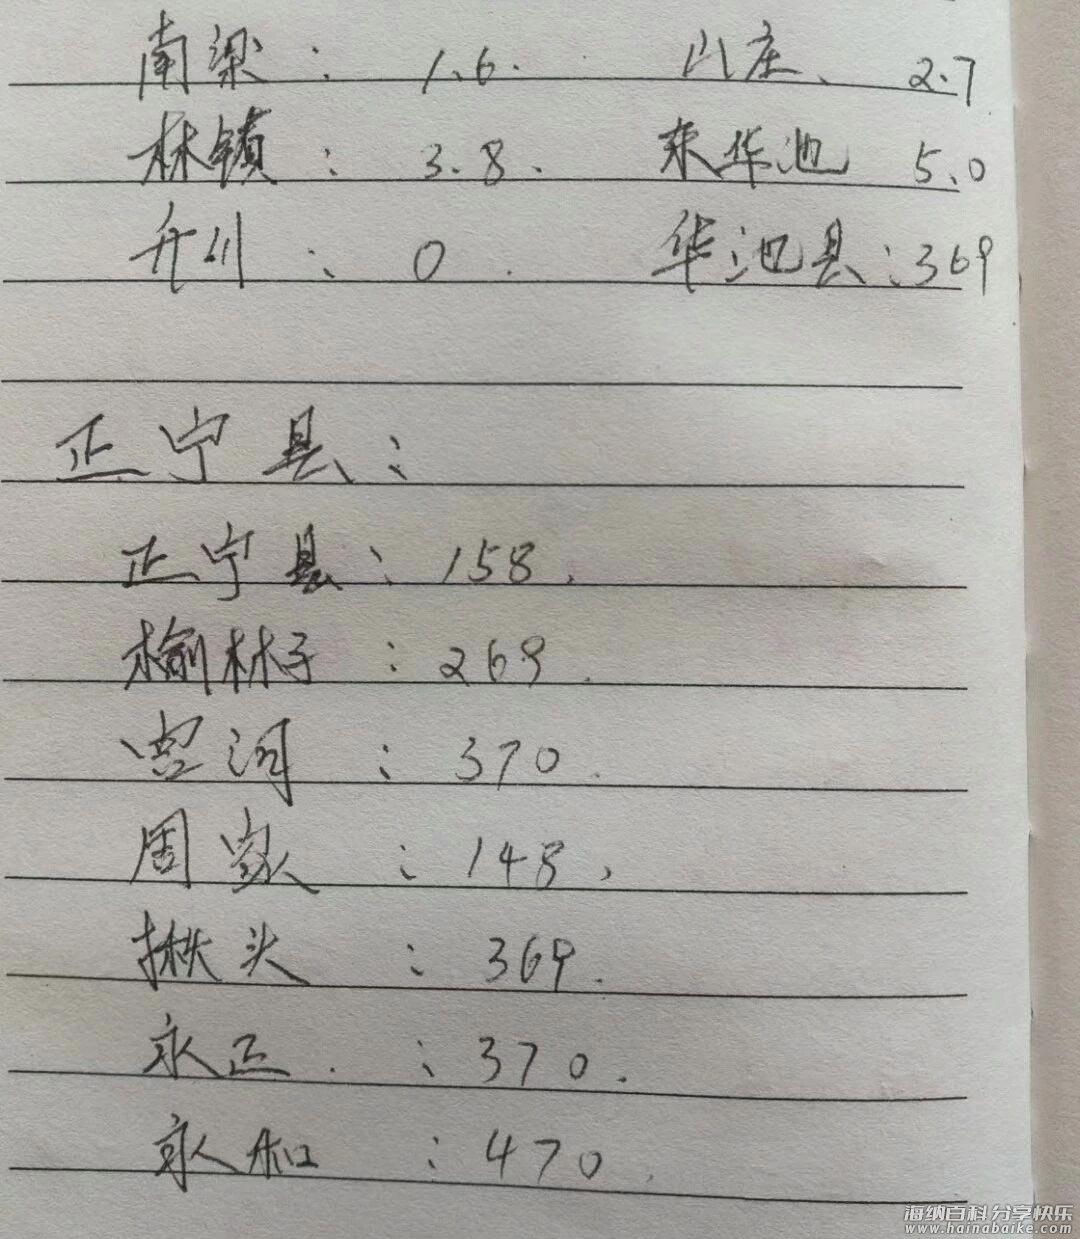 南梁：1.6. 山庄、2.7
林镇：3.8. 东华池 5.0
乔川：0. 华池县：369
正宁县：
正宁县：158.
榆林子：269.
宫河：370.
周家：148.
揪头：369.
永正.：370.
永和：470.
海纳百科 分享快乐
www.hainabaike.com